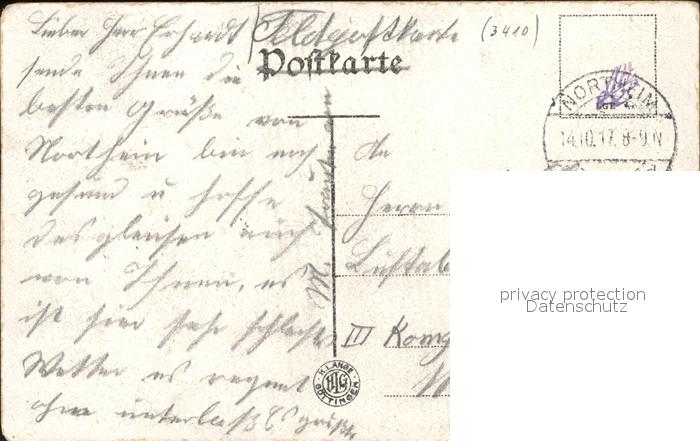 Lieber Herr Erhardt
sende Ihnen die
besten Grüße von
Northein bin noch
gesund u hoffe
des gleichen auch
von Ihnen, es
ist hier sehr schlechtes
Wetter es regnet
ohne unterlaß Es grüßt
Feldpostkarte
(3410)
Postkarte
NORTHEIM
14.10.17. 8-9 N
An
Herrn
Luftab
III Komp
H. LANGE
GÖTTINGEN
privacy protection
Datenschutz